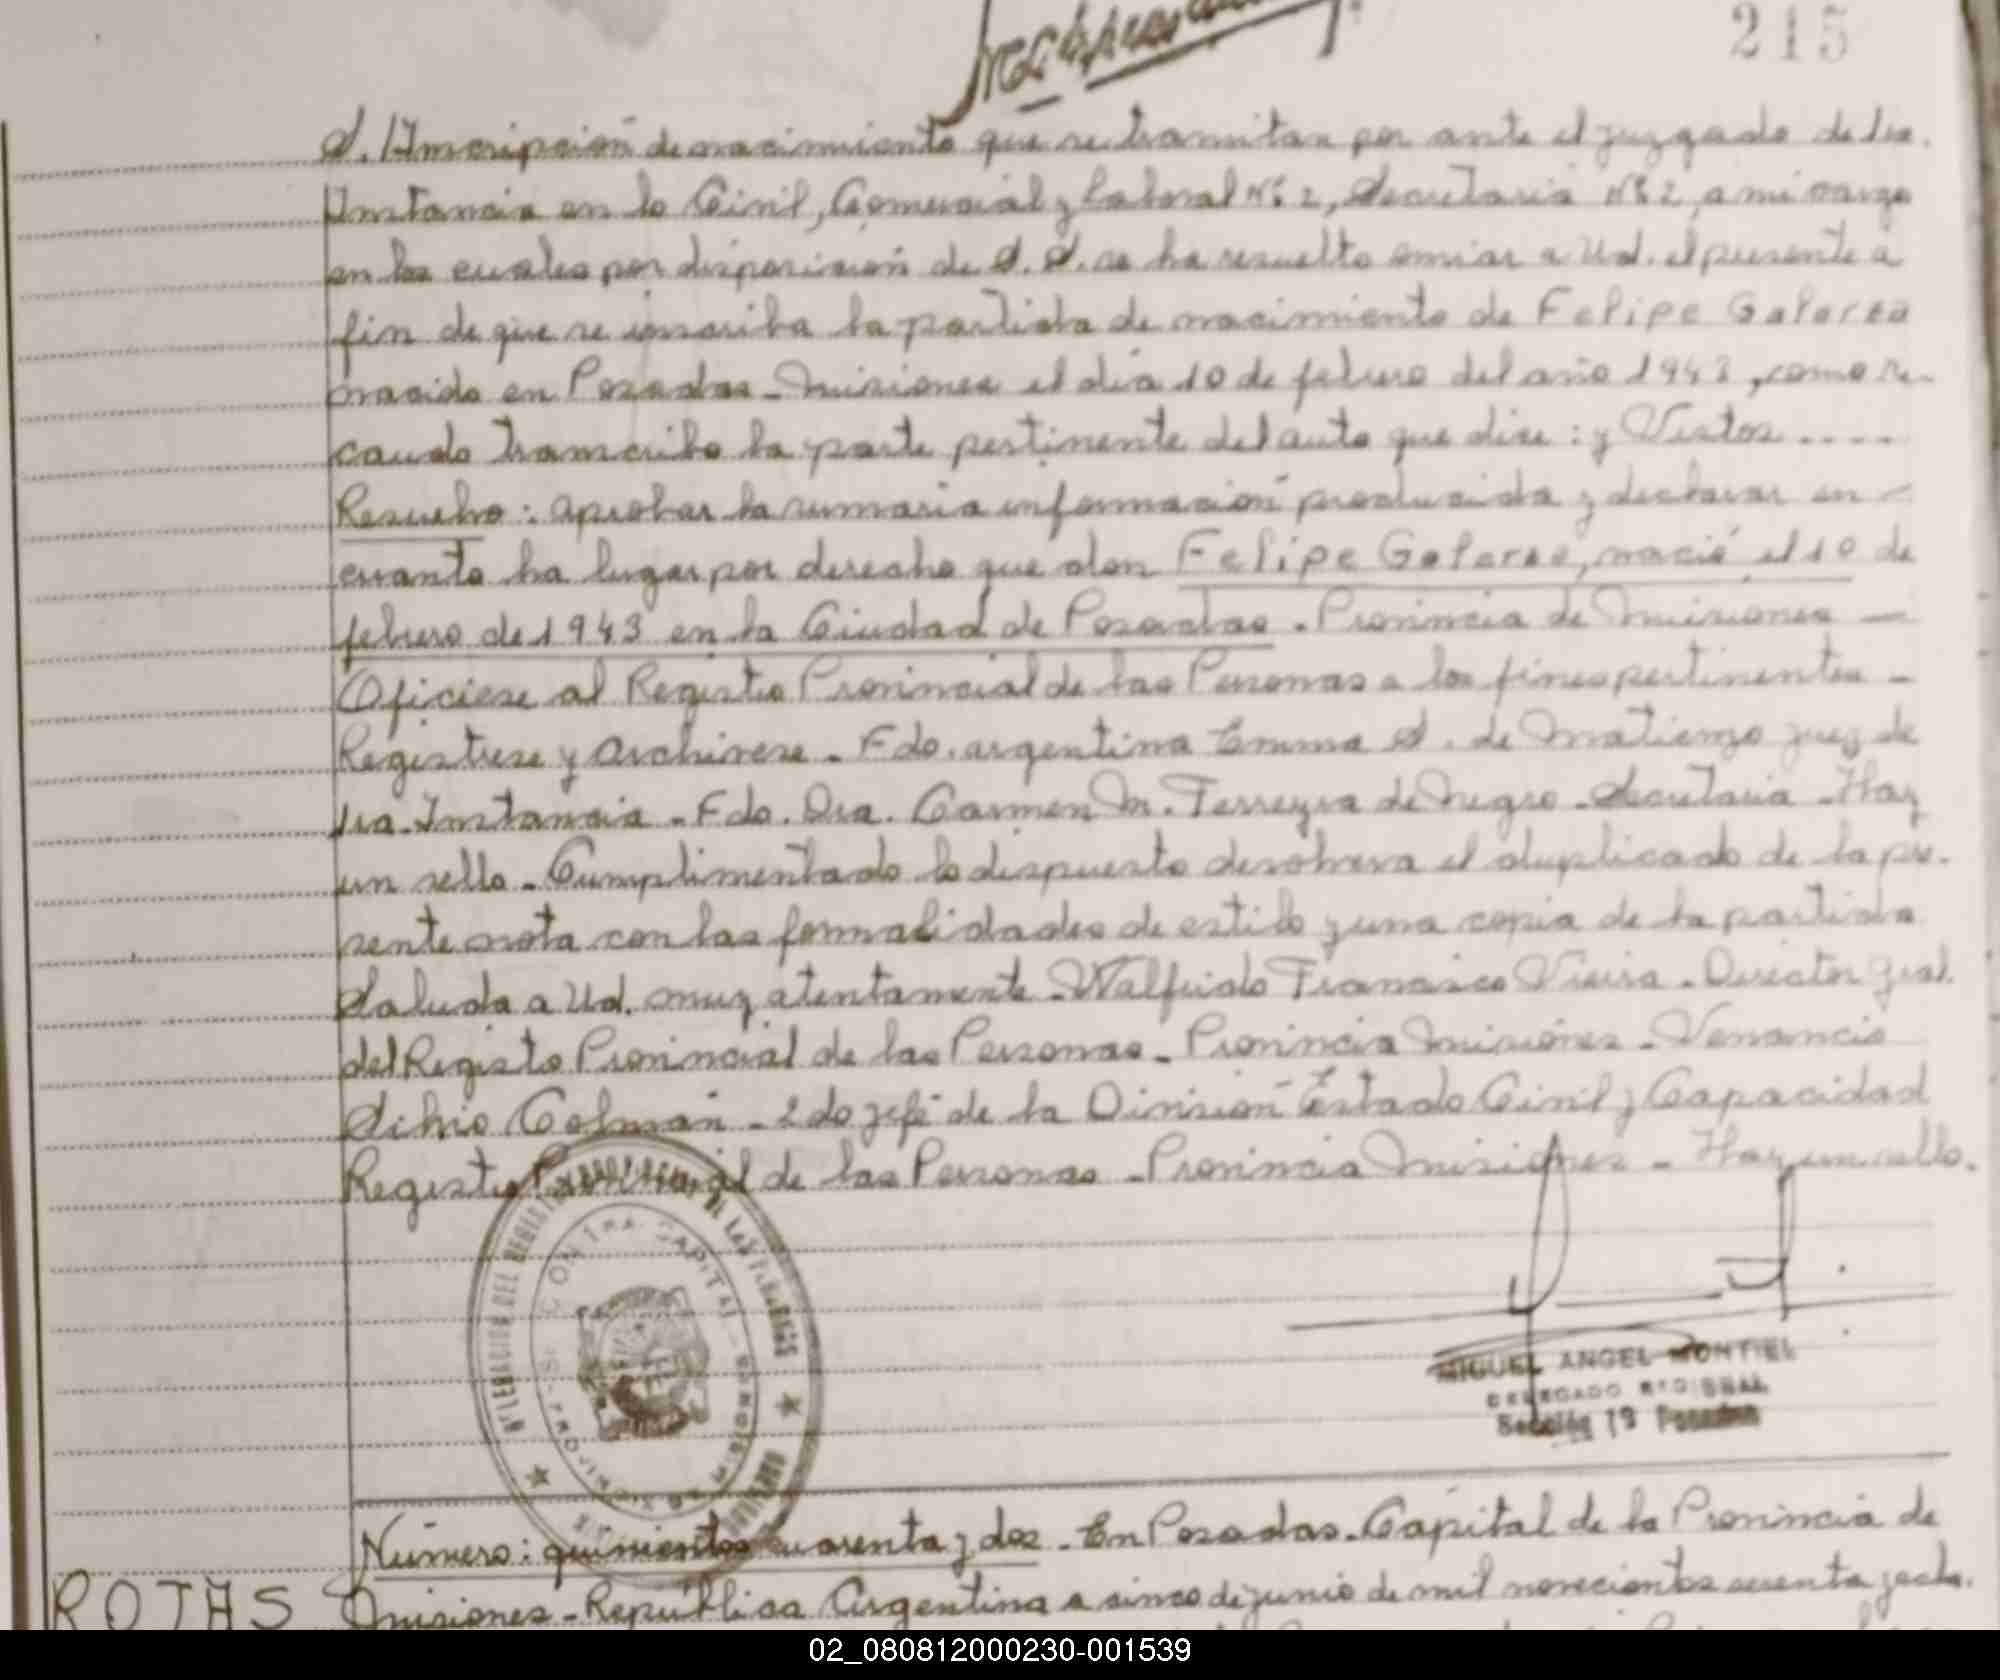 215
S. Inscripción de nacimiento que se tramitan por ante el juzgado de 1ra.
Instancia en lo Civil, Comercial y Laboral Nº 2, Secretaria Nº 2, a mi cargo
en los cuales por disposición de S. S. se ha resuelto enviar a Ud. el presente a
fin de que se inscriba la partida de nacimiento de Felipe Galarza
nacido en Posadas - Misiones el día 10 de febrero del año 1943, como re-
caudo transcribo la parte pertinente del auto que dice: y Vistos ....
Resuelvo: aprobar la sumaria información producida y declarar en
cuanto ha lugar por derecho que don Felipe Galarza, nació el 10 de
febrero de 1943 en la Ciudad de Posadas - Provincia de Misiones -
Oficiese al Registro Provincial de las Personas a los fines pertinentes -
Registrese y archivese - Fdo. argentina Emma S. de Matienzo juez de
1ra. Instancia - Fdo. Dra. Carmen M. Ferreyra de Negro - Secretaria - Hay
un sello - Cumplimentado lo dispuesto devolvera el duplicado de la pre-
sente nota con las formalidades de estilo y una copia de la partida
Saluda a Ud. muy atentamente - Walfrido Francisco Vieira - Director Gral.
del Registro Provincial de las Personas - Provincia Misiones - Venancio
Silvio Colmán - 2do jefe de la División Estado Civil y Capacidad
Registro Provincial de las Personas - Provincia Misiones - Hay un sello.
MIGUEL ANGEL MONTIEL
DELEGADO REGIONAL
Sección 1ª Posadas
Número: quinientos cuarenta y dos - En Posadas - Capital de la Provincia de
ROJAS Misiones - República Argentina a cinco de junio de mil novecientos sesenta y ocho.
02_080812000230-001539